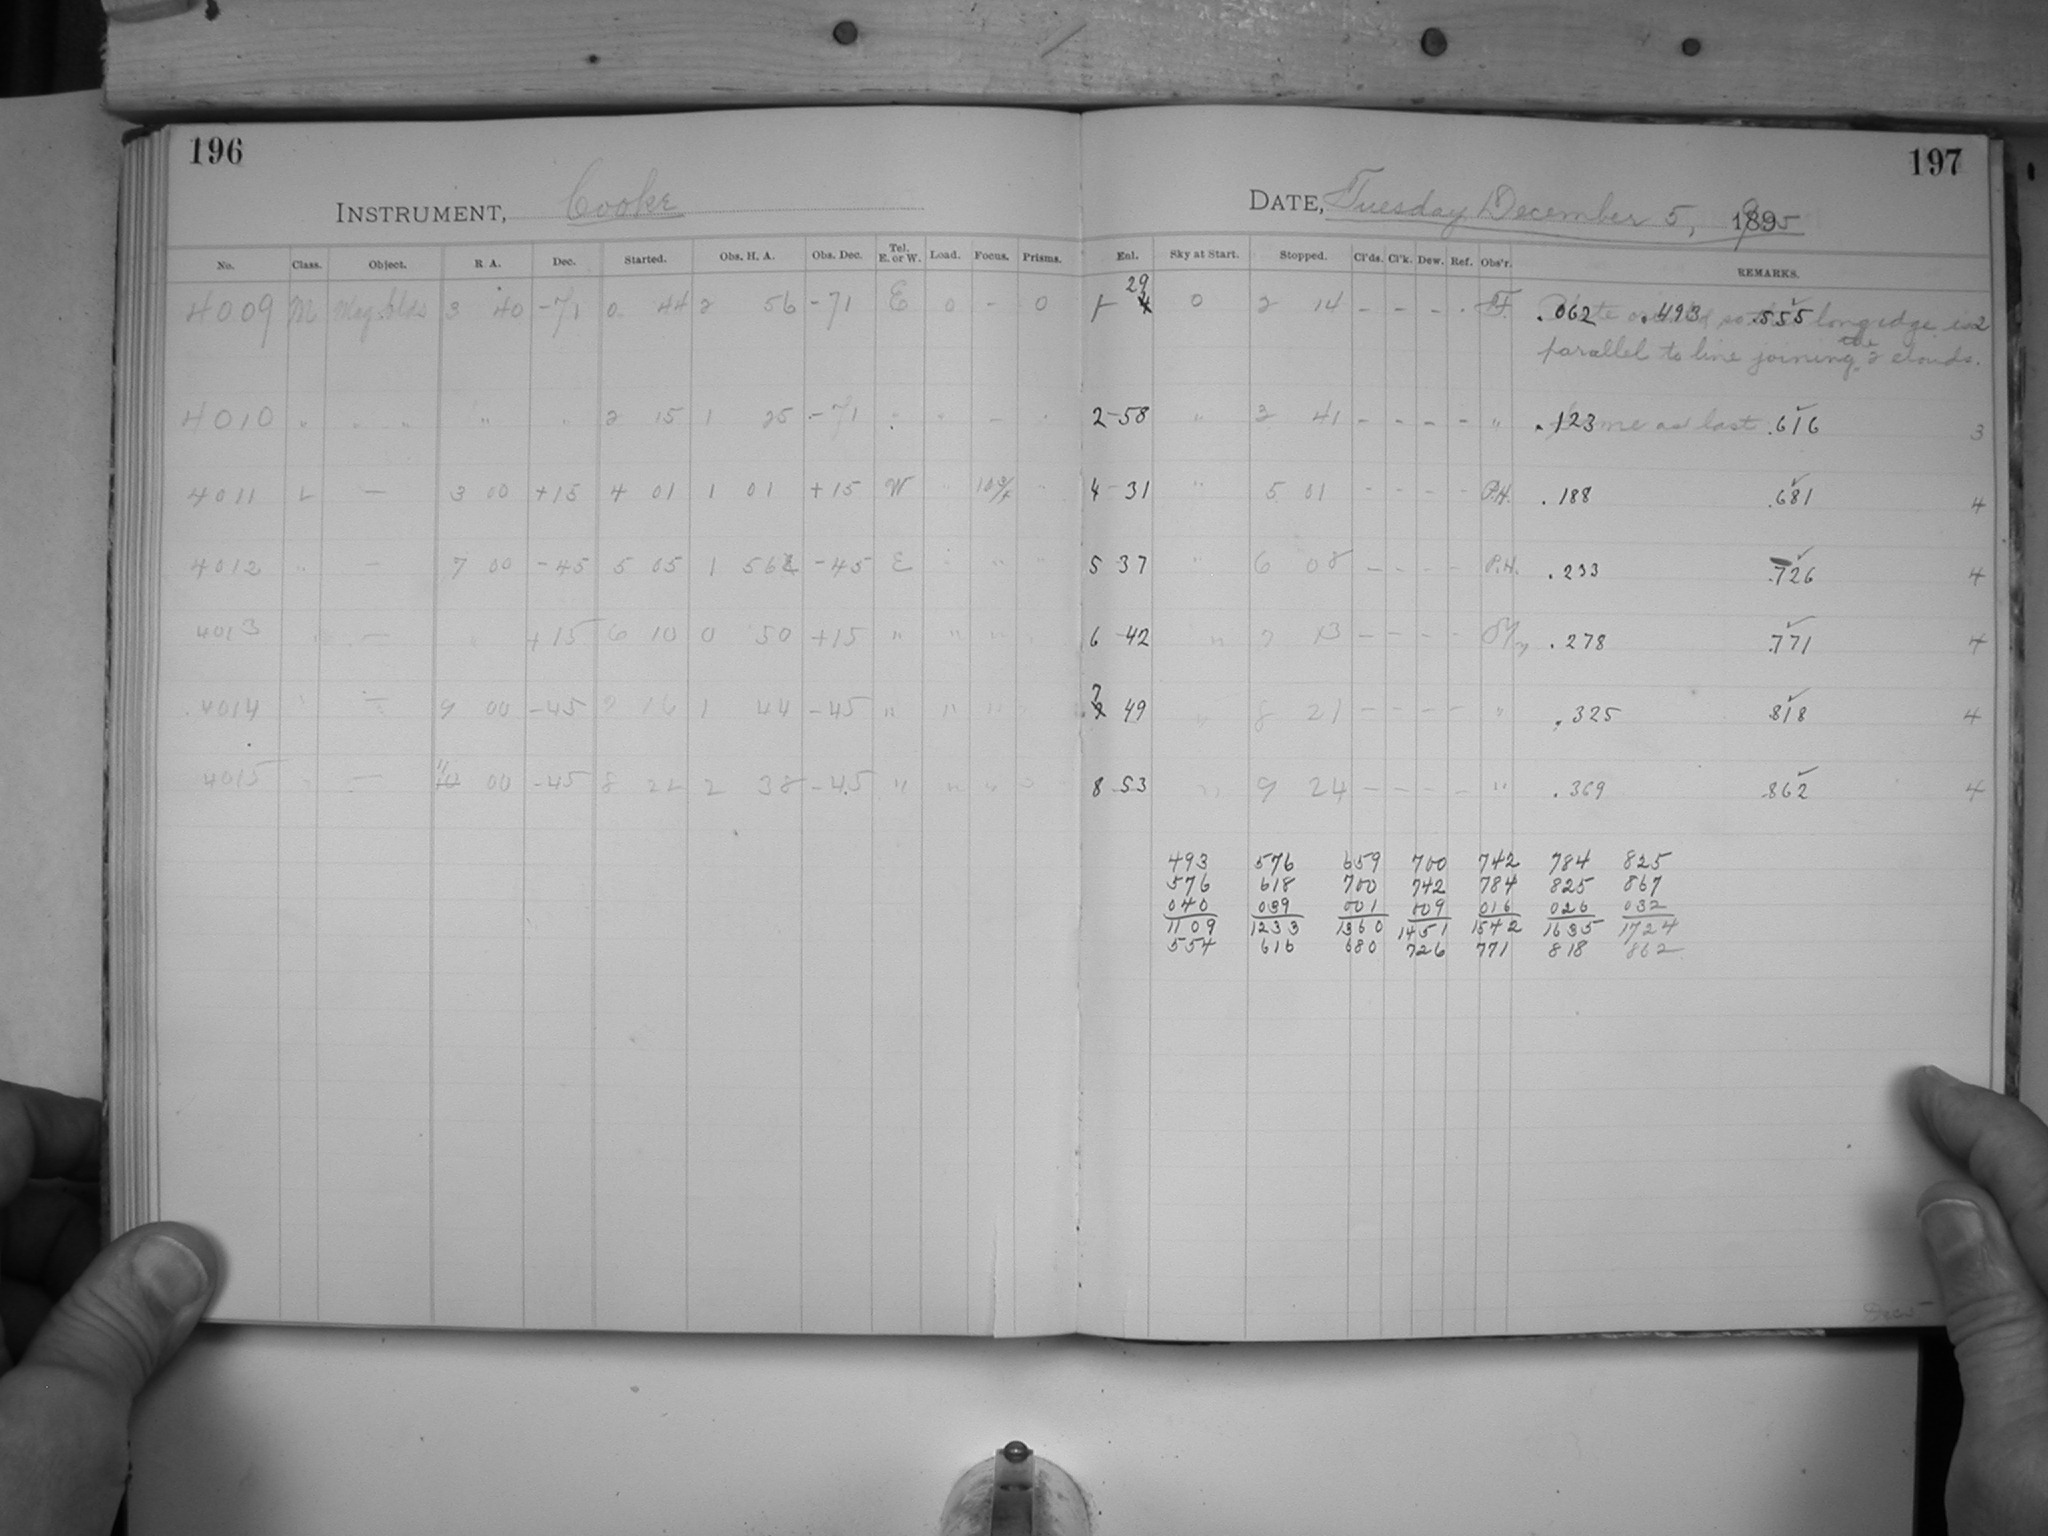 196
197
INSTRUMENT, Cooke
DATE, Tuesday December 5, 1905
No. Class. Object. R A. Dec. Started. Obs. H. A. Obs. Dec. Tel. E. or W. Load. Focus. Prisms. Enl. Sky at Start. Stopped. Cl'ds. Cl'k. Dew. Ref. Obs'r. REMARKS.
4009 M 3 40 -71 0 44 2 56 -71 E 0 - 0 1 29 0 2 14 - - - . .062 .493 .555 long edge is 2
parallel to line joining the 2 clouds.
4010 " " " " " 2 15 1 25 -71 " " - " 2-58 " 2 41 - - - - " .123 same as last .616 3
4011 L — 3 00 +15 4 01 1 01 +15 W " " 4-31 " 5 01 - - - - P.H. .188 .681 4
4012 " — 7 00 -45 5 05 1 56 -45 E " " " 5 37 " 6 08 - - - - P.H. .233 .726 4
4013 " — " +15 6 10 0 50 +15 " " " " 6-42 " 7 13 - - - - .278 .771 4
4014 " — 9 00 -45 7 16 1 44 -45 " " " 7 49 " 8 21 - - - - " .325 .818 4
4015 " — 11 00 -45 8 22 2 38 -45 " " " 8-53 " 9 24 - - - - " .369 .862 4
493 576 659 700 742 784 825
576 618 700 742 784 825 867
040 039 001 009 016 026 032
1109 1233 1360 1451 1542 1635 1724
554 616 680 726 771 818 862